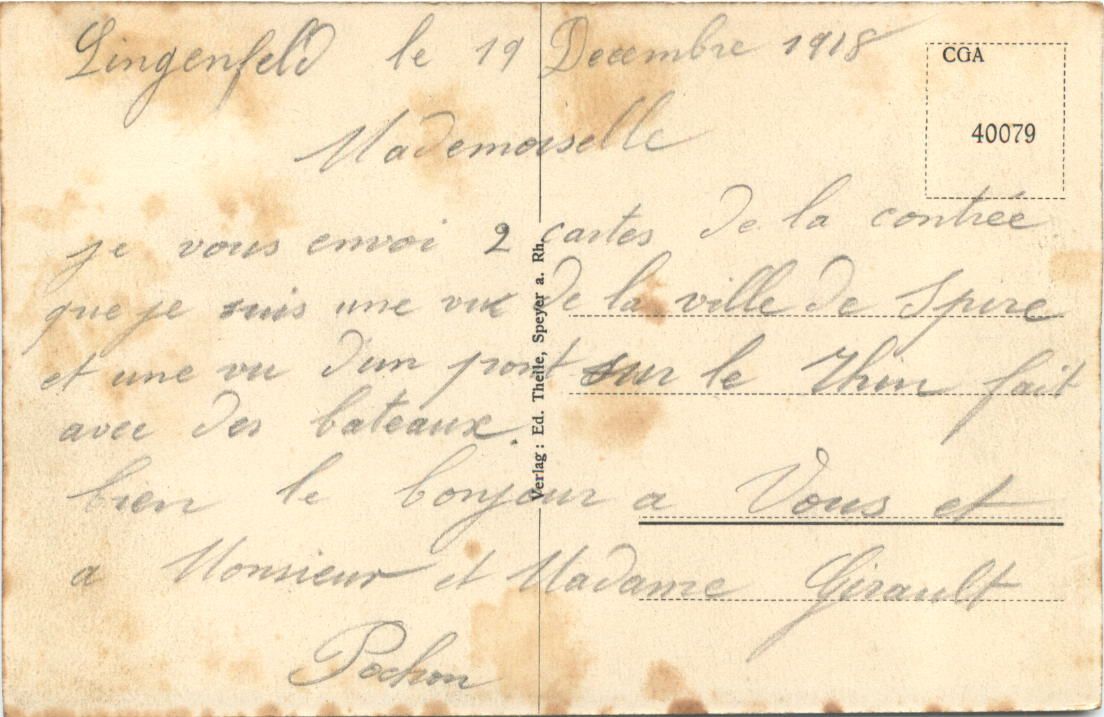 Lingenfeld le 19 Decembre 1918
CGA
40079
Mademoiselle
je vous envoi 2 cartes de la contrée
que je suis une vue de la ville de Spire
et une vu d'un pont sur le Rhin fait
avec des bateaux.
bien le bonjour a Vous et
a Monsieur et Madame Girault
Pochon
Verlag: Ed. Theile, Speyer a. Rh.